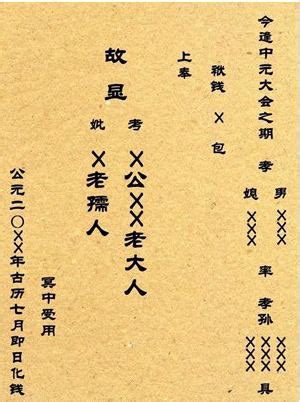 今逢中元大会之期 孝 男 XXX 率 孝孙 XXX 具
媳 XXX XXX
袱钱 X 包
上奉
故显 考 X公XX老大人
妣 X老孺人
冥中受用
公元二〇XX年古历七月即日化钱